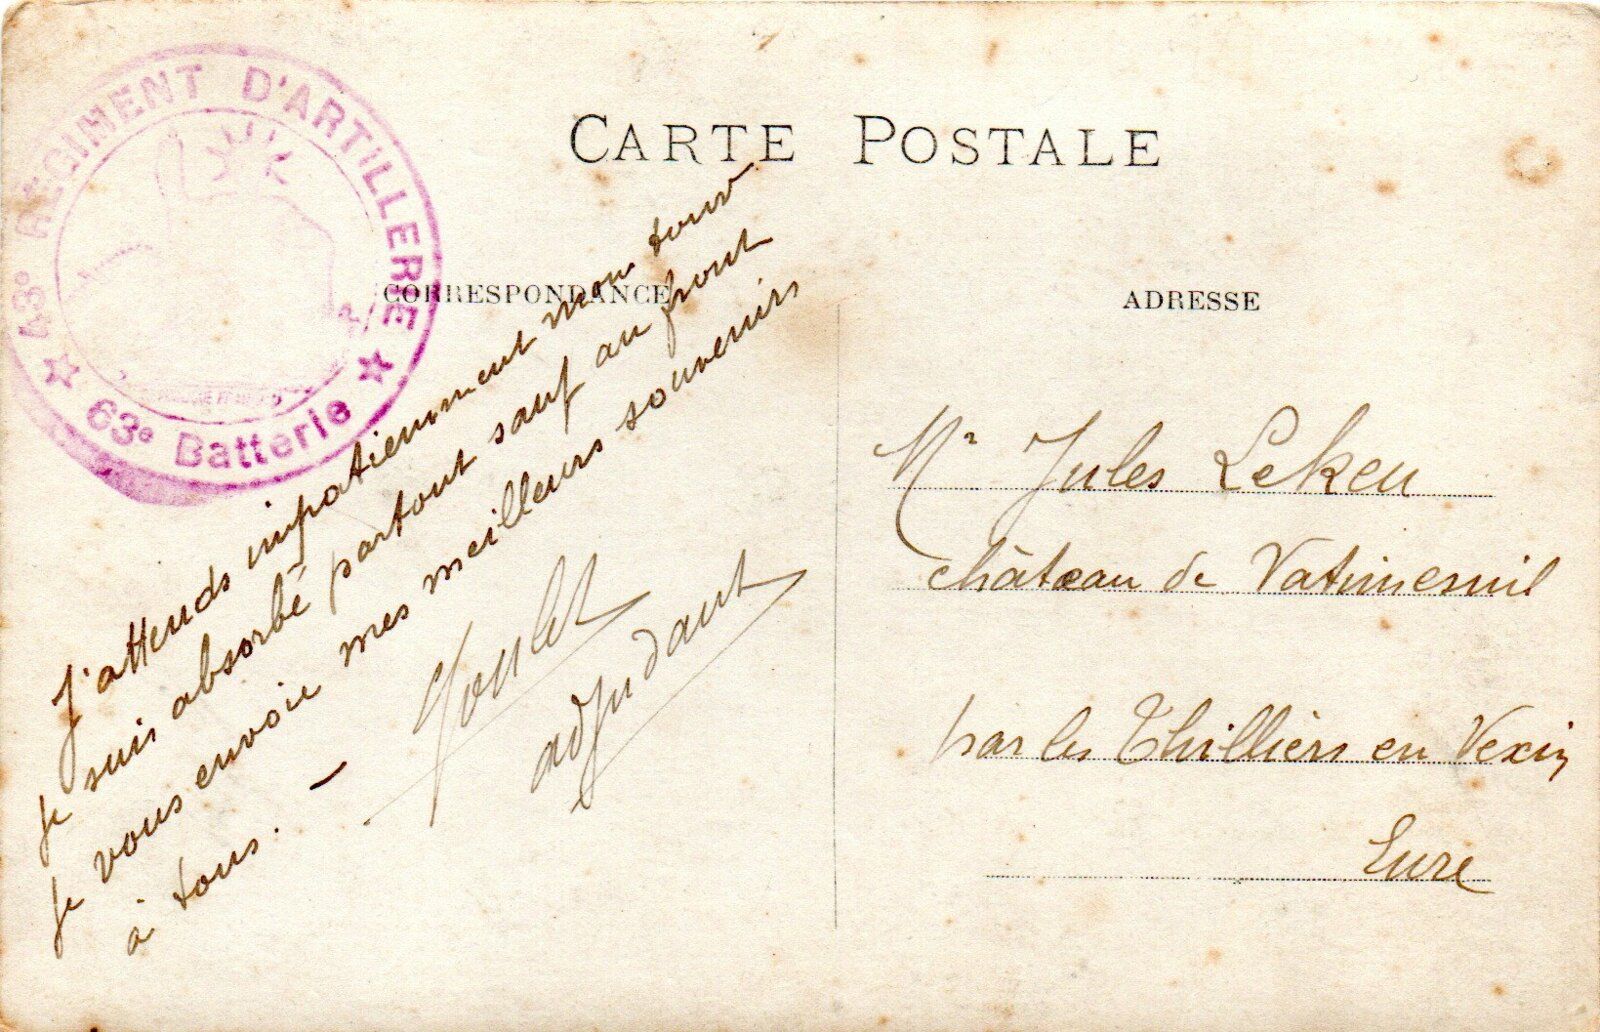 43e RÉGIMENT D'ARTILLERIE
63e Batterie
CARTE POSTALE
CORRESPONDANCE
J'attends impatiemment mon tour
je suis absorbé partout sauf au front
je vous envoie mes meilleurs souvenirs
à tous. —
adjudant
ADRESSE
Mr Jules Lekeu
château de Vatimesnil
par les Thilliers en Vexin
Eure